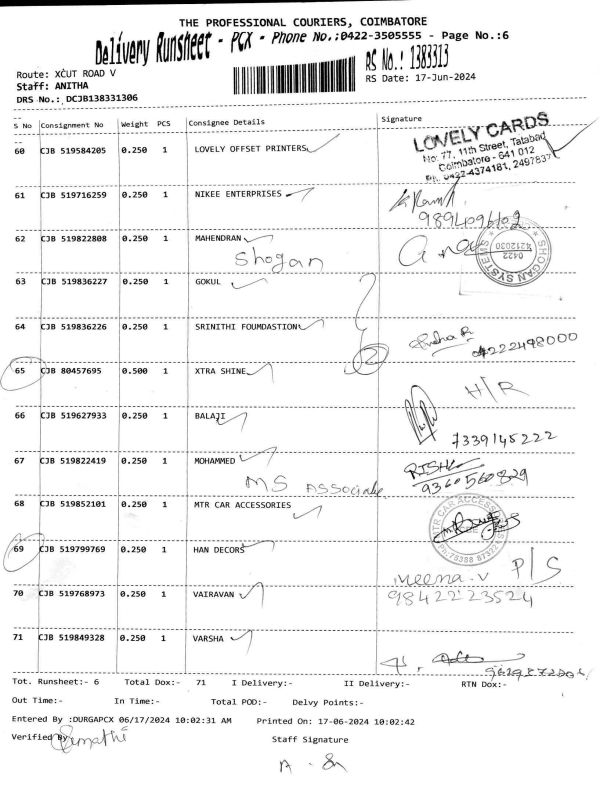 THE PROFESSIONAL COURIERS, COIMBATORE
Delivery Runsheet - PCX - Phone No.:0422-3505555 - Page No.:6
Route: XCUT ROAD V
RS No.: 1383313
Staff: ANITHA
RS Date: 17-Jun-2024
DRS No.: DCJB138331306
S No Consignment No Weight PCS Consignee Details Signature
60 CJB 519584205 0.250 1 LOVELY OFFSET PRINTERS
LOVELY CARDS
No: 77, 11th Street, Tatabad
Coimbatore - 641 012
Ph: 0422-4374181, 2497837
61 CJB 519716259 0.250 1 NIKEE ENTERPRISES
9894096102
62 CJB 519822808 0.250 1 MAHENDRAN
Shogan
SHOGAN SYSTEMS
0422
4212030
63 CJB 519836227 0.250 1 GOKUL
64 CJB 519836226 0.250 1 SRINITHI FOUMDASTION
2
04222498000
65 CJB 80457695 0.500 1 XTRA SHINE
H/R
66 CJB 519627933 0.250 1 BALAJI
7339145222
67 CJB 519822419 0.250 1 MOHAMMED
MS Associate
9360560829
68 CJB 519852101 0.250 1 MTR CAR ACCESSORIES
MTR CAR ACCESSORIES
69 CJB 519799769 0.250 1 HAN DECORS
P/S
Meena.V
70 CJB 519768973 0.250 1 VAIRAVAN
9842223524
71 CJB 519849328 0.250 1 VARSHA
Tot. Runsheet:- 6 Total Dox:- 71 I Delivery:- II Delivery:- RTN Dox:-
Out Time:- In Time:- Total POD:- Delvy Points:-
Entered By :DURGAPCX 06/17/2024 10:02:31 AM Printed On: 17-06-2024 10:02:42
Verified By
Staff Signature